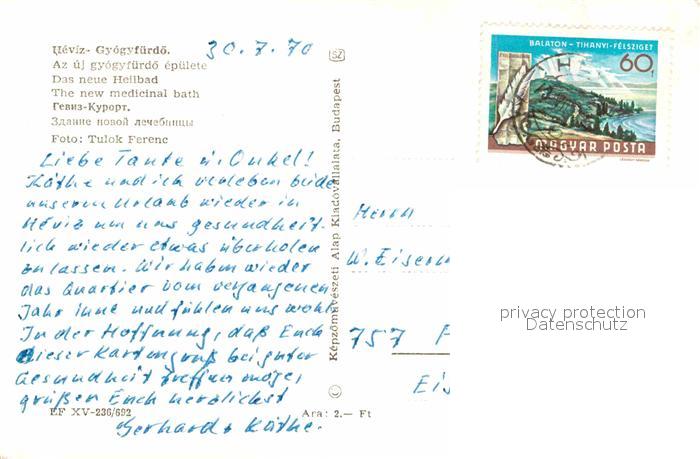 Hévíz- Gyógyfürdő.
Az új gyógyfürdő épülete
Das neue Heilbad
The new medicinal bath
Гевиз-Курорт.
Здание новой лечебницы
Foto: Tulok Ferenc
30.7.70
Liebe Tante u. Onkel!
Käthe und ich verleben beide
unseren Urlaub wieder in
Héviz um uns gesundheit-
lich wieder etwas überholen
zu lassen. Wir haben wieder
das Quartier vom vergangenen
Jahr inne und fühlen uns wohl.
In der Hoffnung, daß Euch
dieser Kartengruß bei guter
Gesundheit treffen möge,
grüßen Euch herzlichst
Gerhard + Käthe.
EF XV-236/692
Ara: 2.— Ft
SZ
Képzőművészeti Alap Kiadóvállalata, Budapest
BALATON - TIHANYI-FÉLSZIGET
60f
MAGYAR POSTA
Herrn
W. Eiserm
757 F
Eis
privacy protection
Datenschutz